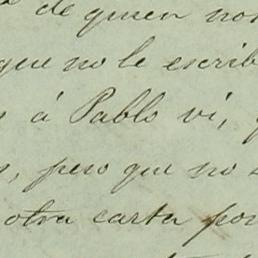 de quien non
que no le escrib
á Pablo vi,
, pero que no
otra carta por